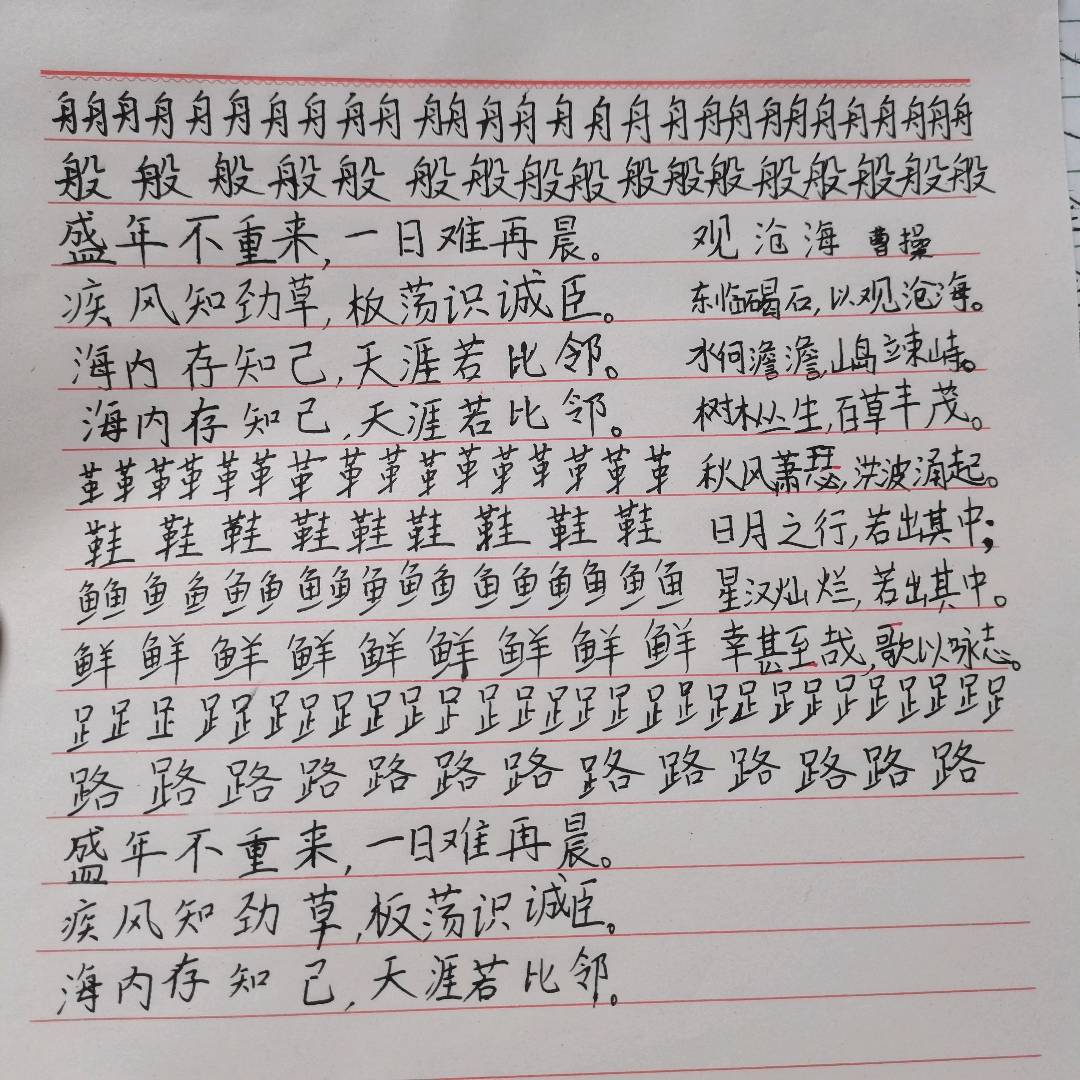 舟舟舟舟舟舟舟舟舟舟舟舟舟舟舟舟舟舟舟舟舟舟舟舟舟舟舟舟
般般般般般般般般般般般般般般般般般
盛年不重来,一日难再晨。
疾风知劲草,板荡识诚臣。
海内存知己,天涯若比邻。
海内存知己,天涯若比邻。
革革革革革革革革革革革革革革革革
鞋鞋鞋鞋鞋鞋鞋鞋鞋
鱼鱼鱼鱼鱼鱼鱼鱼鱼鱼鱼鱼鱼鱼鱼鱼鱼
鲜鲜鲜鲜鲜鲜鲜鲜鲜
观沧海 曹操
东临碣石,以观沧海。
水何澹澹,山岛竦峙。
树木丛生,百草丰茂。
秋风萧瑟,洪波涌起。
日月之行,若出其中;
星汉灿烂,若出其中。
幸甚至哉,歌以咏志。
足足足足足足足足足足足足足足足足足足足足足足足足足足足足
路路路路路路路路路路路路路
盛年不重来,一日难再晨。
疾风知劲草,板荡识诚臣。
海内存知己,天涯若比邻。